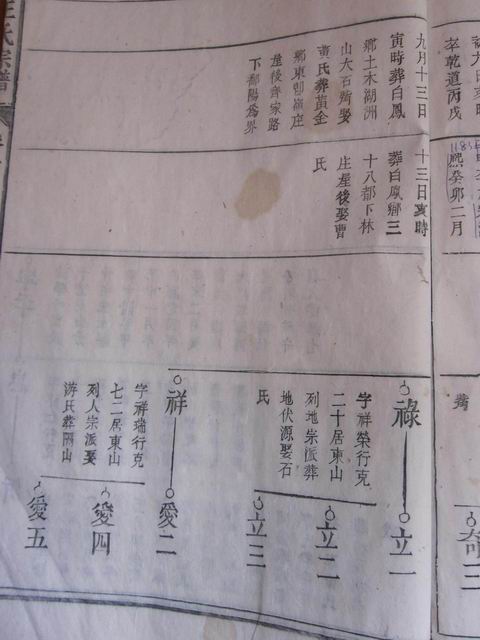 卒乾道丙戌
熙癸卯二月
奇三
九月十三日
寅時葬白鳳
鄉土木湖洲
山大石旁娶
黃氏葬黃金
鄉東
屋後齊家路
下都陽為界
十三日亥時
葬白鳳鄉三
十八都下林
庄屋後娶曹
氏
祿
字祥榮行克
二十居東山
列地宗派葬
地伏源娶石
氏
立一
立二
立三
祥
字祥瑞行克
七二居東山
列人宗派娶
游氏葬陽山
愛二
愛四
愛五
氏宗譜